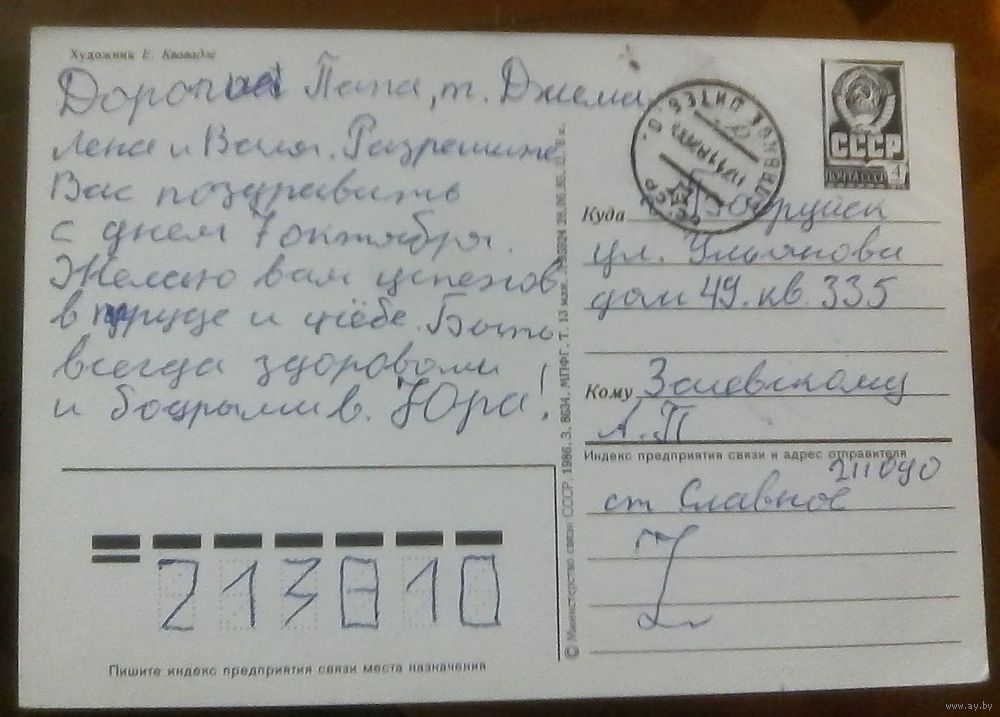 Художник Е. Квавадзе
Дорогие Папа, т. Джема
Лена и Валя. Разрешите
Вас поздравить
с днем 7 октября.
Желаю вам успехов
в труде и учёбе. Быть
всегда здоровыми
и бодрыми в. Юра!
СССР
ПОЧТА СССР 4
Куда г. Бобруйск
ул. Ульянова
дом 49. кв. 335
Кому Заневскому
А. П
Индекс предприятия связи и адрес отправителя
211090
ст Славное
213810
Пишите индекс предприятия связи места назначения
© Министерство связи СССР, 1986. З. 8634. МПФГ. Т. 13 мил.
www.ay.by